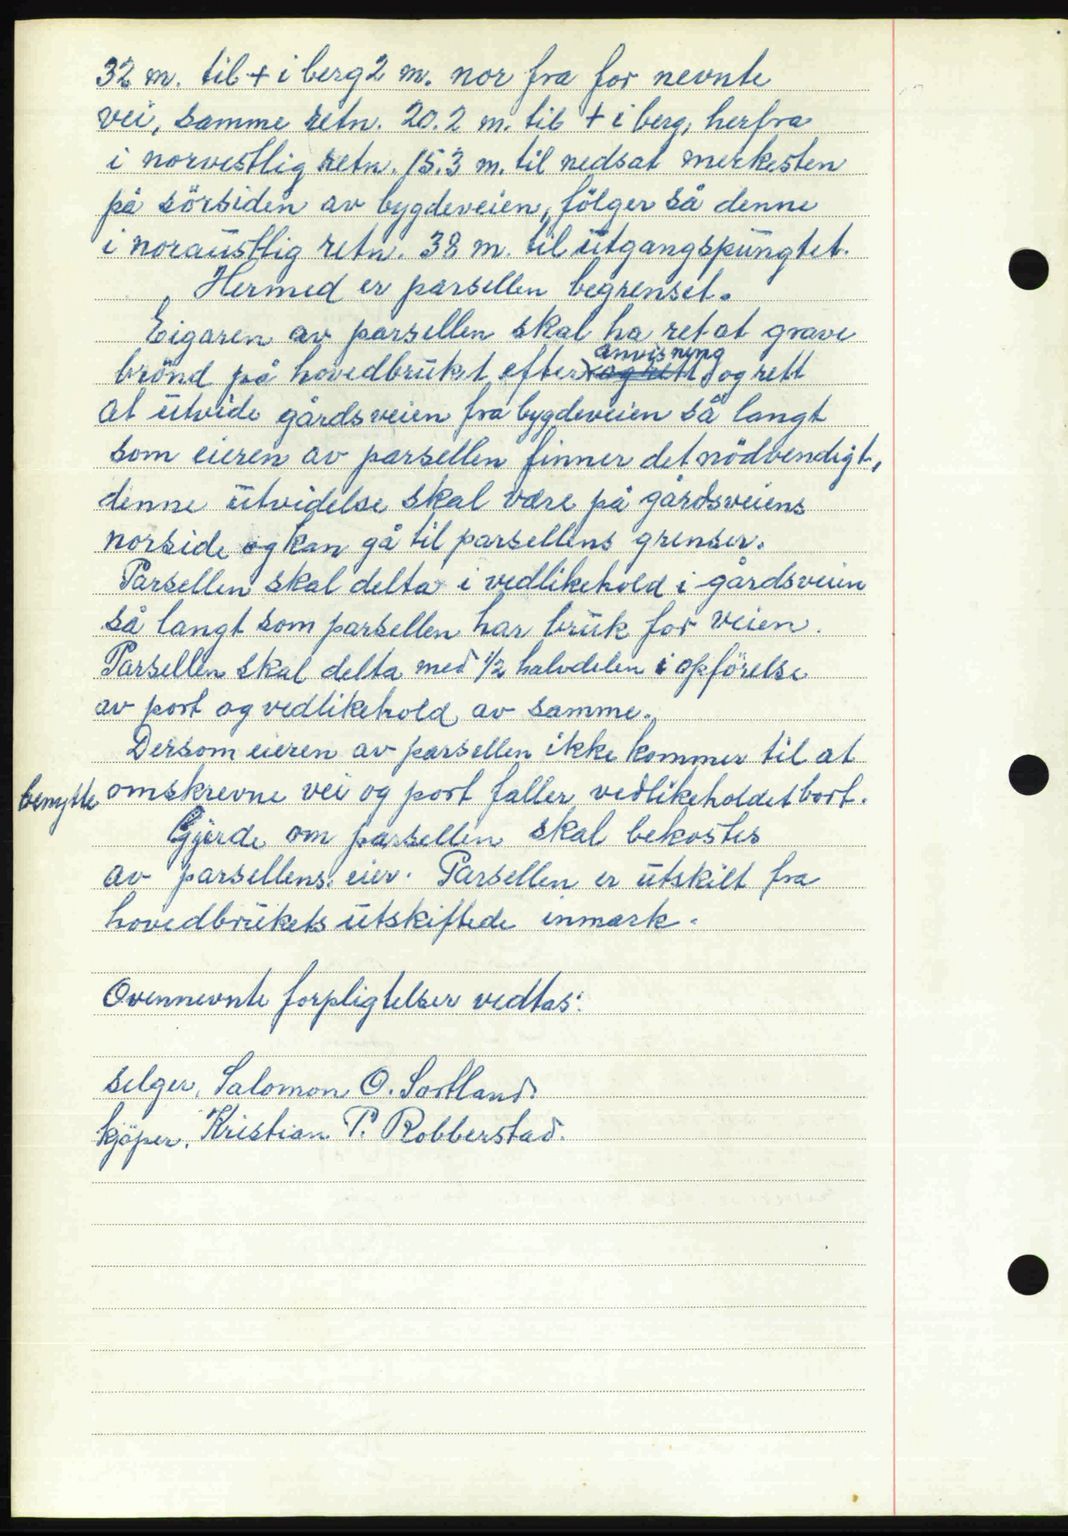 32 m. til + i berg 2 m. nor fra for nevnte
vei, samme retn. 20.2 m. til + i berg, herfra
i norvestlig retn. 15.3 m. til nedsat merkesten
på sörsiden av bygdeveien, fölger så denne
i noraustlig retn. 38 m. til utgangspungtet.
Hermed er parsellen begrenset.
Eigaren av parsellen skal ha ret at grave
anvisning
brönd på hovedbruket efter og rett og rett
at utvide gårdsveien fra bygdeveien så langt
som eieren av parsellen finner det nödvendigt,
denne utvidelse skal være på gårdsveiens
norside og kan gå til parsellens grenser.
Parsellen skal delta i vedlikehold i gårdsveien
så langt som parsellen har bruk for veien.
Parsellen skal delta med 1/2 halvdelen i opförelse
av port og vedlikehold av samme.
Dersom eieren av parsellen ikke kommer til at
benytte omskrevne vei og port faller vedlikeholdet bort.
Gjerde om parsellen skal bekostes
av parsellens eier. Parsellen er utskilt fra
hovedbrukets utskiftede inmark.
Ovennevnte forpligtelser vedtas:
selger, Salomon O. Sortland.
kjöper, Kristian T. Robberstad.